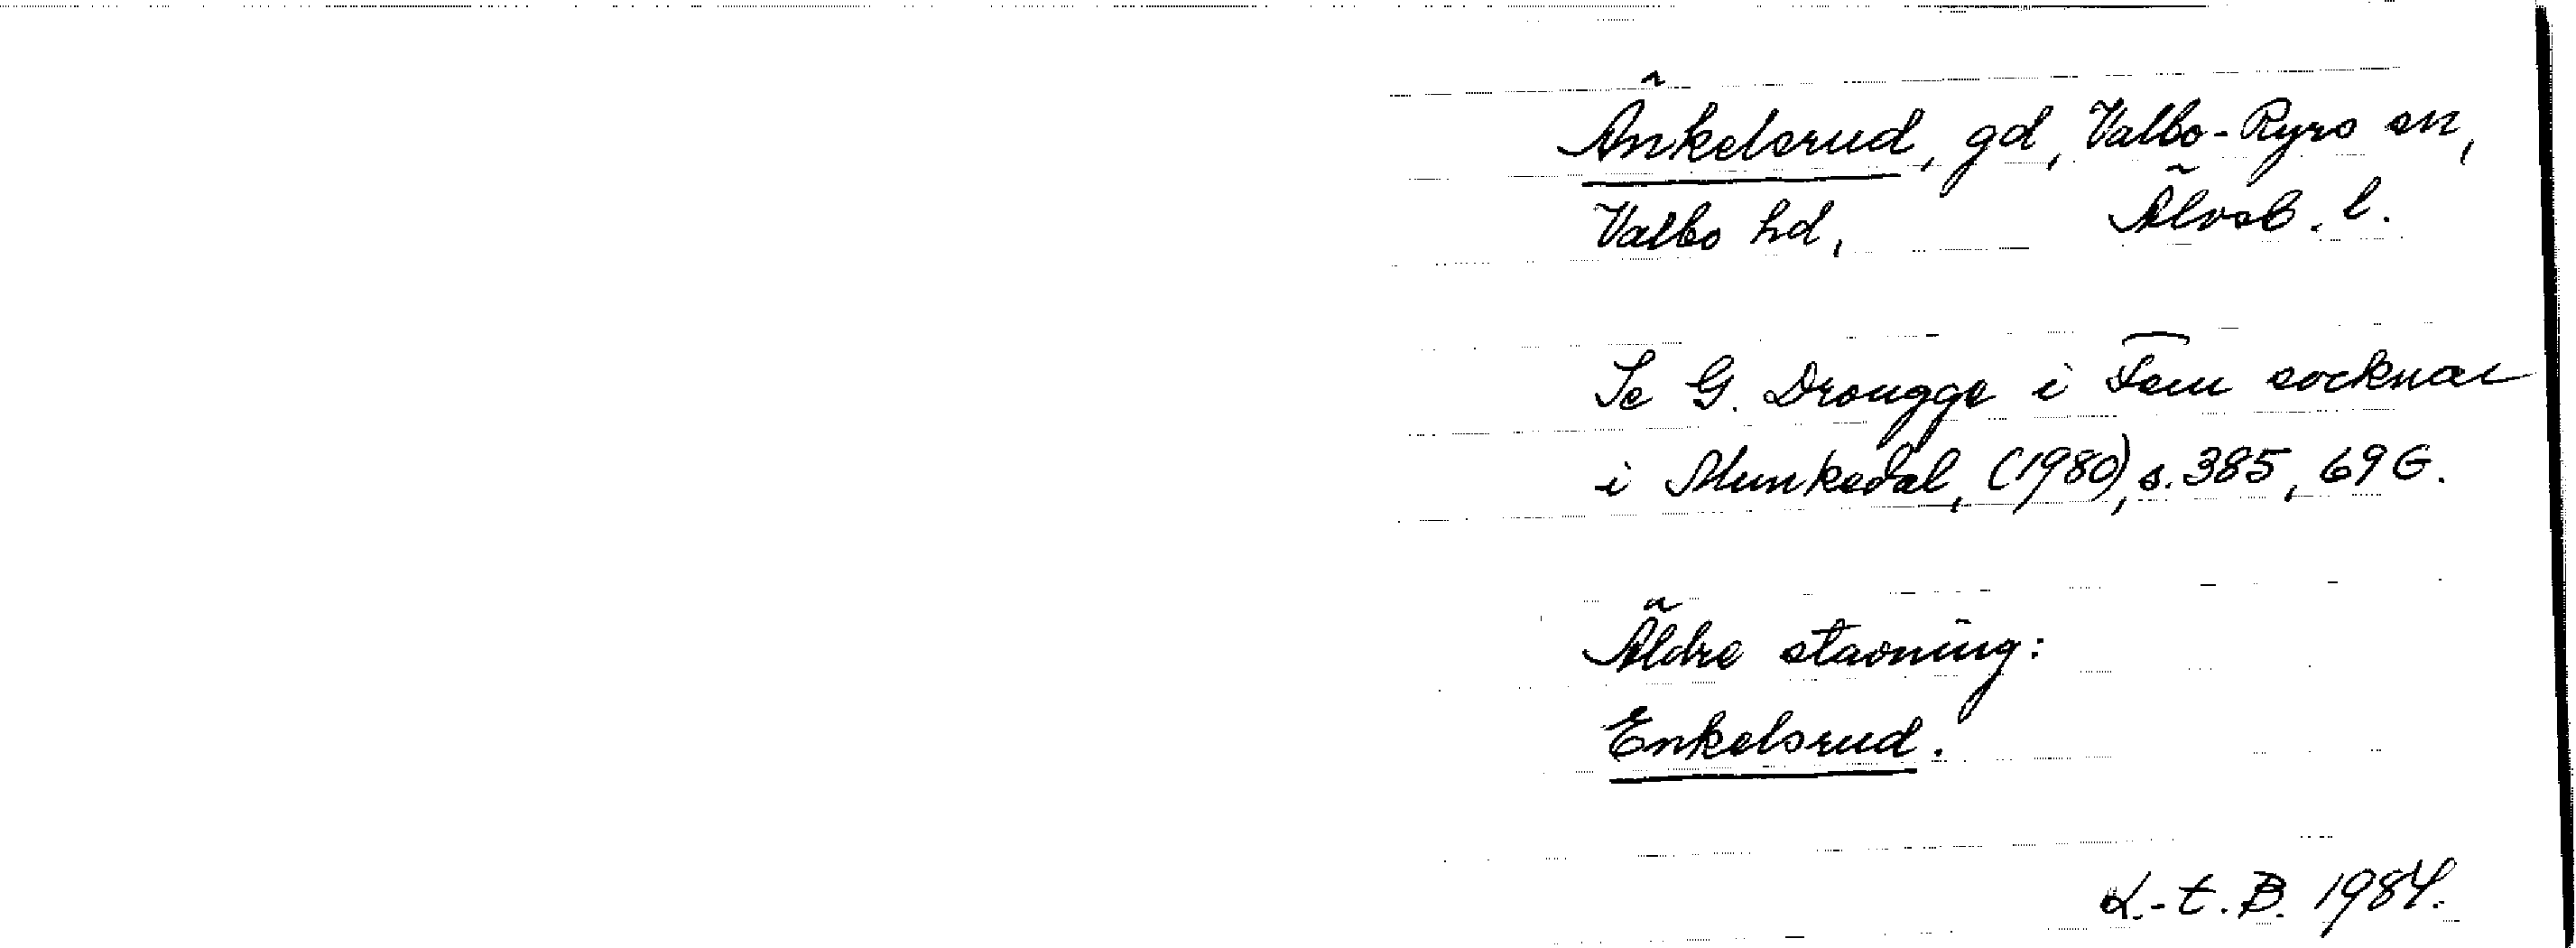 Änkelsrud, gd, Valbo-Ryrs sn,
Valbo hd, Älvsb. l.
Se G. Drougge i Fem socknar
i Munkedal, (1980), s. 385, 69 G.
Äldre stavning:
Enkelsrud.
L.-t. B. 1984.